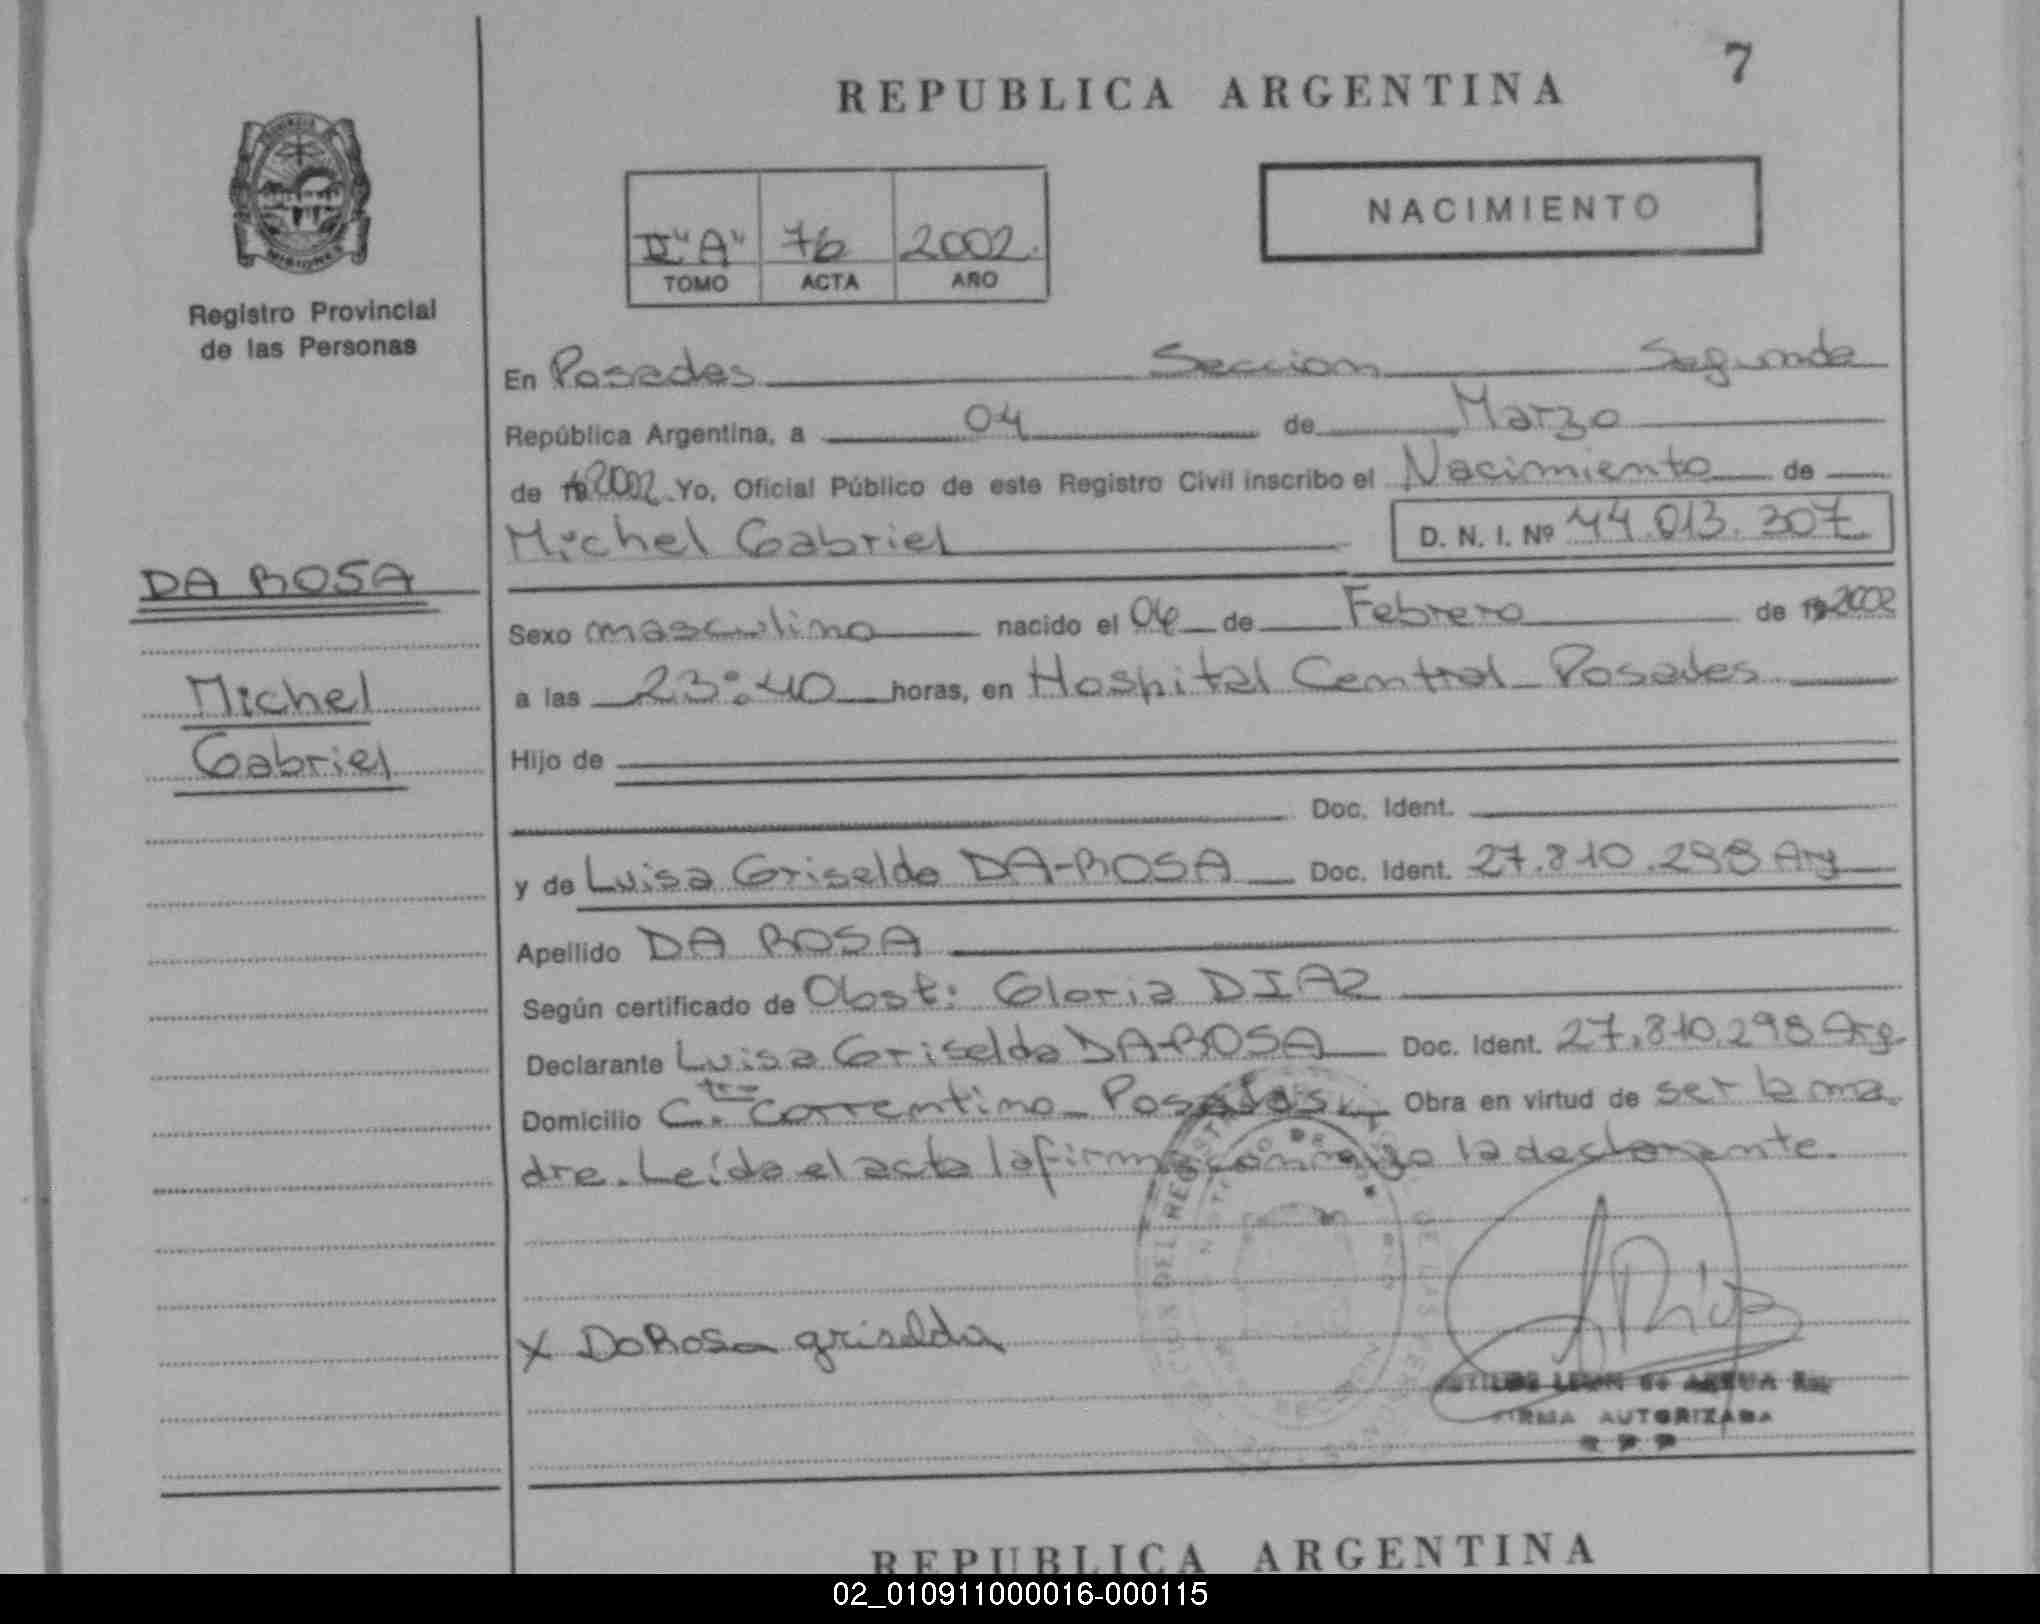 7
REPUBLICA ARGENTINA
NACIMIENTO
II "A" 76 2002.
TOMO ACTA AÑO
Registro Provincial
de las Personas
En Posadas Seccion Segunda
República Argentina, a 04 de Marzo
de 2002 Yo, Oficial Público de este Registro Civil inscribo el Nacimiento de
Michel Gabriel D. N. I. Nº 44.013.307
DA ROSA
Michel
Gabriel
Sexo masculino nacido el de Febrero de 2002
a las 23:40 horas, en Hospital Central Posadas
Hijo de
Doc. Ident.
y de Luisa Griselda DA-ROSA Doc. Ident. 27.810.298 Arg
Apellido DA ROSA
Según certificado de Obst: Gloria DIAZ
Declarante Luisa Griselda DA-ROSA Doc. Ident. 27.810.298 Arg.
Domicilio Correntino Posadas Obra en virtud de ser la ma
dre. Leída el acta la firma conmigo la declarante.
X DaRosa griselda
FIRMA AUTORIZADA
REPUBLICA ARGENTINA
02_010911000016-000115